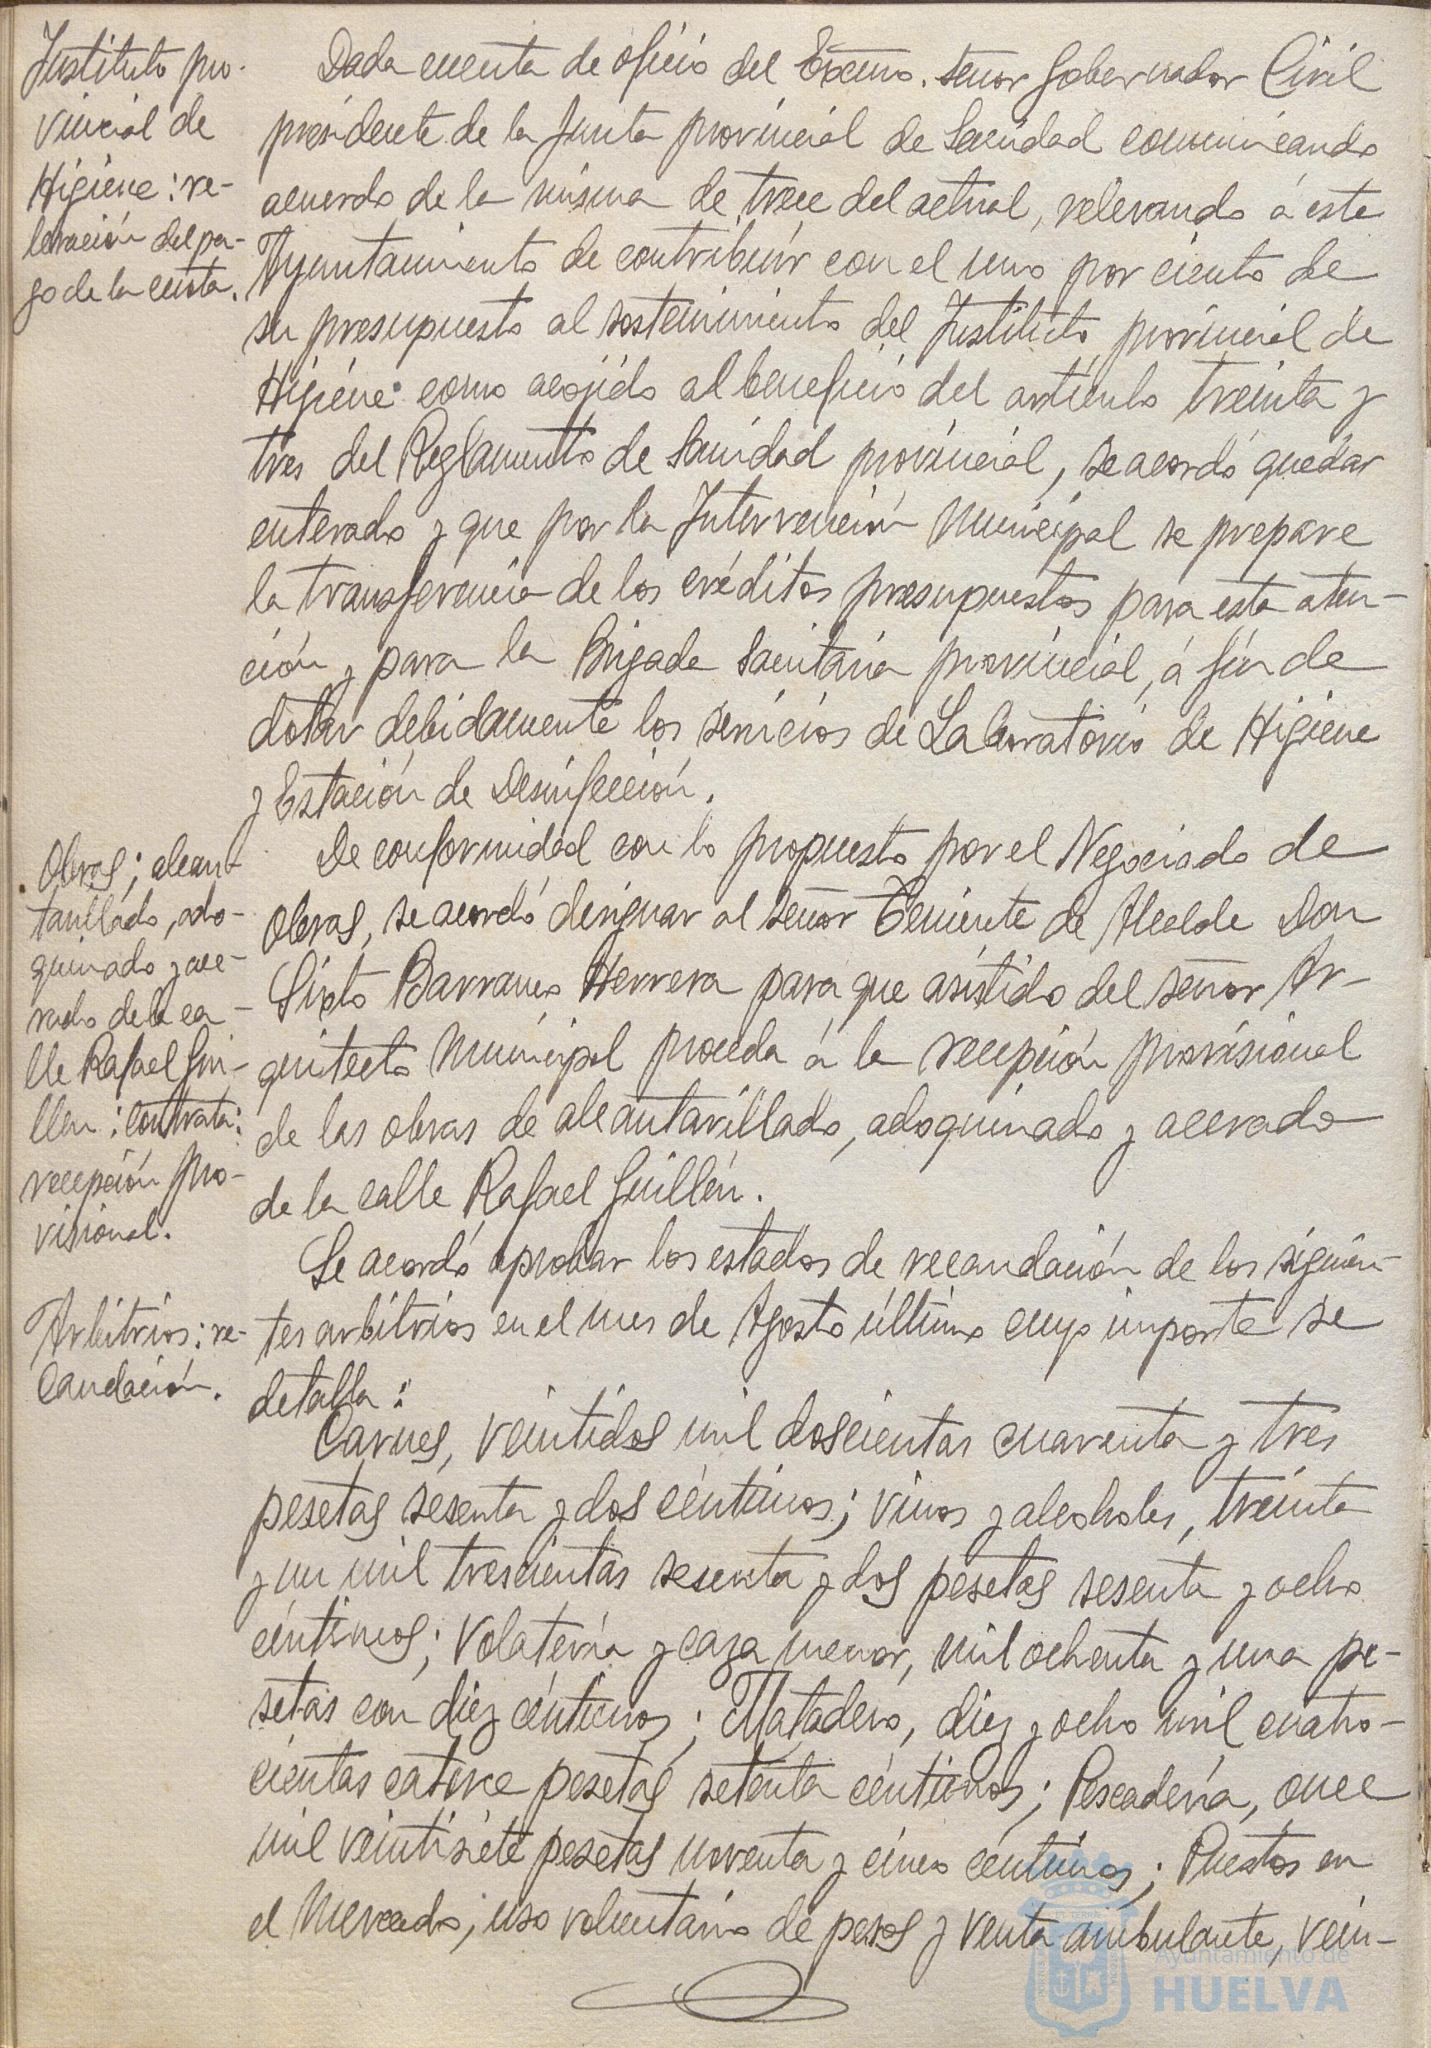 Instituto pro-
vincial de
Higiene: re-
levación del pa-
go de la cuota.
Dada cuenta de oficio del Excmo. señor Gobernador Civil
presidente de la Junta provincial de Sanidad comunicando
acuerdo de la misma de trece del actual, relevando á este
Ayuntamiento de contribuir con el uno por ciento de
su presupuesto al sostenimiento del Instituto provincial de
Higiene como acojido al beneficio del artículo treinta y
tres del Reglamento de Sanidad provincial, se acordó quedar
enterado y que por la Intervención Municipal se prepare
la transferencia de los créditos presupuestos para esta aten-
ción y para la Brigada Sanitaria provincial, á fin de
dotar debidamente los servicios de Laboratorio de Higiene
y Estación de Desinfección.
Obras; alcan-
tarillado, ado-
quinado y ace-
rado de la ca-
lle Rafael Gui-
llen: contrata:
recepción pro-
visional.
De conformidad con lo propuesto por el Negociado de
Obras, se acordó designar al señor Teniente de Alcalde Don
Sixto Barranco Herrera para que asistido del señor Ar-
quitecto Municipal proceda á la recepción provisional
de las obras de alcantarillado, adoquinado y acerado
de la calle Rafael Guillén.
Arbitrios: re-
caudación.
Se acordó aprobar los estados de recaudación de los siguien-
tes arbitrios en el mes de Agosto último cuyo importe se
detalla:
Carnes, veintidos mil doscientas cuarenta y tres
pesetas sesenta y dos céntimos; vinos y alcoholes, treinta
y un mil trescientas sesenta y dos pesetas sesenta y ocho
céntimos; Volatería y caza menor, mil ochenta y una pe-
setas con diez céntimos; Matadero, diez y ocho mil cuatro-
cientas catorce pesetas setenta céntimos; Pescadería, once
mil veintisiete pesetas noventa y cinco céntimos; Puestos en
el Mercado, uso voluntario de pesos y venta ambulante, vein-
Ayuntamiento de
HUELVA